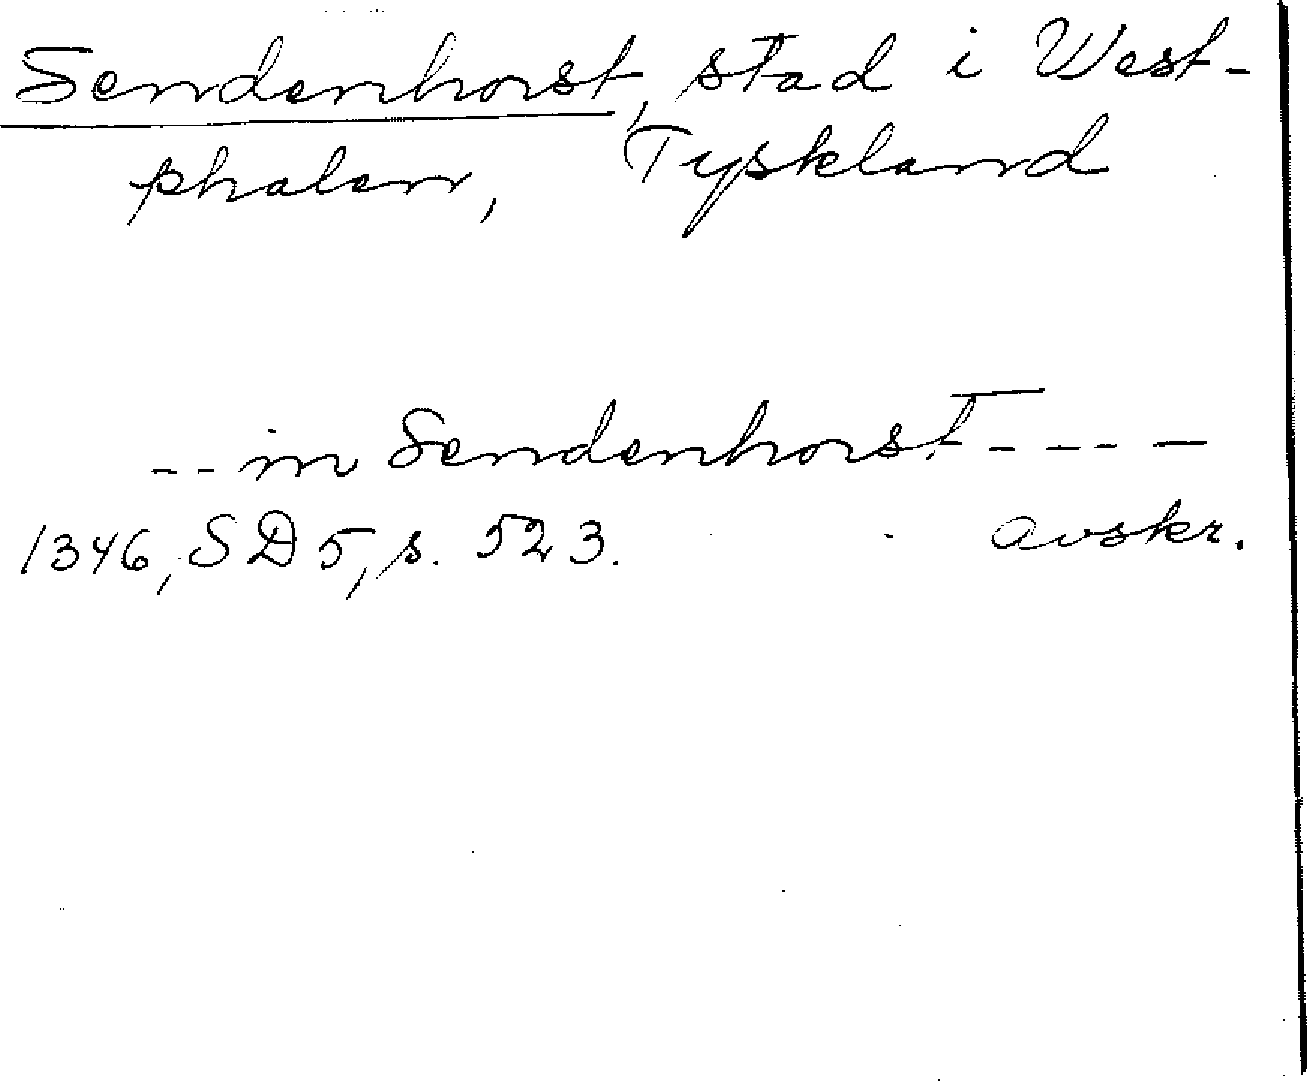 Sendenhorst, stad i West-
phalen, Tyskland
-- in Sendenhorst ----
1346, SD 5, s. 523. avskr.